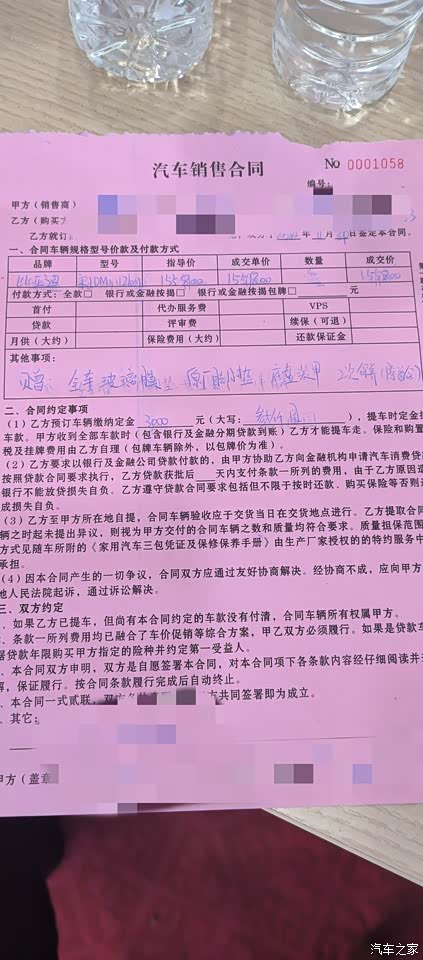 汽车销售合同
No 0001058
编号:
甲方(销售商)
乙方(购买方
乙方就订
年 月 日签定本合同。
一、合同车辆规格型号价款及付款方式
品牌 型号 指导价 成交单价 数量 成交价
比亚迪 155800 155800 155800
付款方式:全款□ 银行或金融按揭□ 银行或金融按揭包牌□ 元
首付 代办服务费 VPS
贷款 评审费 续保(可退)
月供(大约) 保险费用(大约) 还款保证金
其他事项:
赠:全车玻璃膜 原厂脚垫 底盘装甲 2次保养
二、合同约定事项
(1)乙方预订车辆缴纳定金 3000 元(大写: ),提车时定金抵
车款。甲方收到全部车款时(包含银行及金融分期贷款到账)乙方才能提车走。保险和购置
税及挂牌费用由乙方自理(包牌车辆除外,以包牌价为准)。
(2)乙方要求以银行及金融公司贷款付款的,由甲方协助乙方向金融机构申请汽车消费贷
按照贷款合同要求执行,乙方贷款获批后 天内支付条款一所列的费用,由于乙方原因造
银行不能放贷损失自负。乙方遵守贷款合同要求包括但不限于按时还款、购买保险等否则造
成损失自负。
(3)乙方至甲方所在地自提,合同车辆验收应于交货当日在交货地点进行。乙方提取合同
辆之时起未提出异议,则视为甲方交付的合同车辆之数和质量均符合要求。质量担保范围
方式见随车所附的《家用汽车三包凭证及保修保养手册》由生产厂家授权的的特约服务中
承担。
(4)因本合同产生的一切争议,合同双方应通过友好协商解决。经协商不成,应向甲方
地人民法院起诉,通过诉讼解决。
三、双方约定
、如果乙方已提车,但尚有本合同约定的车款没有付清,合同车辆所有权属甲方。
、条款一所列费用均已融合了车价促销等综合方案,甲乙双方必须履行。如果是贷款车
据贷款年限购买甲方指定的险种并约定第一受益人。
、本合同双方申明,双方是自愿签署本合同,对本合同项下各条款内容经仔细阅读并
解,保证履行。按合同条款履行完成后自动终止。
、本合同一式贰联,双方各 共同签署即为成立。
、其它:
甲方(盖章
汽车之家